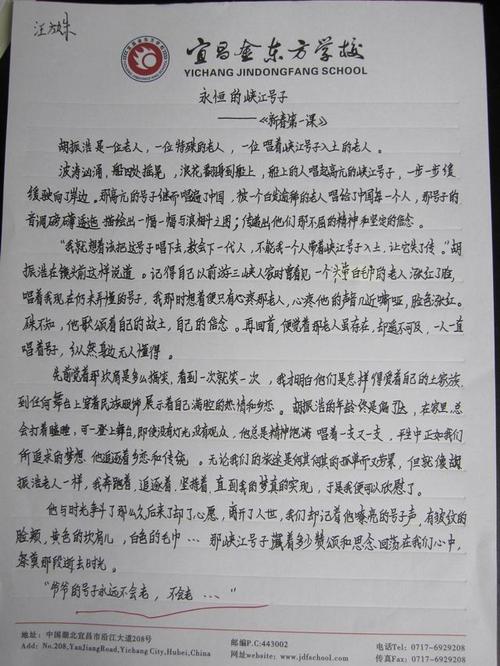 宜昌金东方学校
YICHANG JINDONGFANG SCHOOL
永恒的峡江号子
——《新春第一课》
胡振浩是一位老人，一位特殊的老人，一位唱着峡江号子入土的老人。
波涛汹涌，船四处摇尾，浪花翻身到船上，船上的人唱起高亢的峡江号子，一步一步缓
缓驶向了岸边。那高亢的号子继而唱遍了中国，被一个白发沧桑的老人唱给了中国每一个人，那号子的
音调磅礴 描绘出一幅一幅与浪相斗之图；传递出他们那不屈的精神和坚定的信念。
“我就想着该把这号子唱下去，教会下一代人，不能我一个人带着峡江号子入土，让它失了传。”胡
振浩在镜头前这样说道。记得自己以前游三峡人家时曾看见一个头带白毛巾的老人涨红了脸，
唱着我现在仍未弄懂的号子，我那时想着便只有心疼那老人，心疼他的声音几近嘶哑，脸色涨红。
殊不知，他歌颂着自己的故土，自己的信念。再回首，便觉着那老人虽存在，却遥不可及，一人一直
唱着号子，纵然身边无人懂得。
先前觉着那坎肩是多么搞笑，看到一次就笑一次，我才明白他们是怎样得爱着自己的土家族
到任何舞台上穿着民族服饰展示着自己满腔的热情和乡恋。胡振浩的年龄终是偏大，在家里总
会打着瞌睡，可一登上舞台，即使没有灯光没有观众，他总是精神饱满 唱着一支又一支，平生中正如我们
所追求的梦想 他追逐着乡恋和传统。无论我们的旅途是何其何其的孤单而又劳累，但就像胡
振浩老人一样，我奔跑着，追逐着，坚持着，直到我的梦真的实现，于是我便可以欣慰了。
他与时光争斗了那么久后来了却了心愿，离开了人世，我们却记着他嘹亮的号子声，有皱纹的
脸颊，黄色的坎肩儿，白色的毛巾…那峡江号子藏着多少赞颂和思念 回荡在我们心中，
祭奠那段逝去时光。
“爷爷的号子永远不会老，不会老……”
地址：中国湖北宜昌市沿江大道208号
Add: No.208,YanJiangRoad,Yichang City,Hubei,China
邮编P.C:443002
网址：www.jdfschool.com
电话Tel: 0717-6929208
传真Fax: 0717-6929208